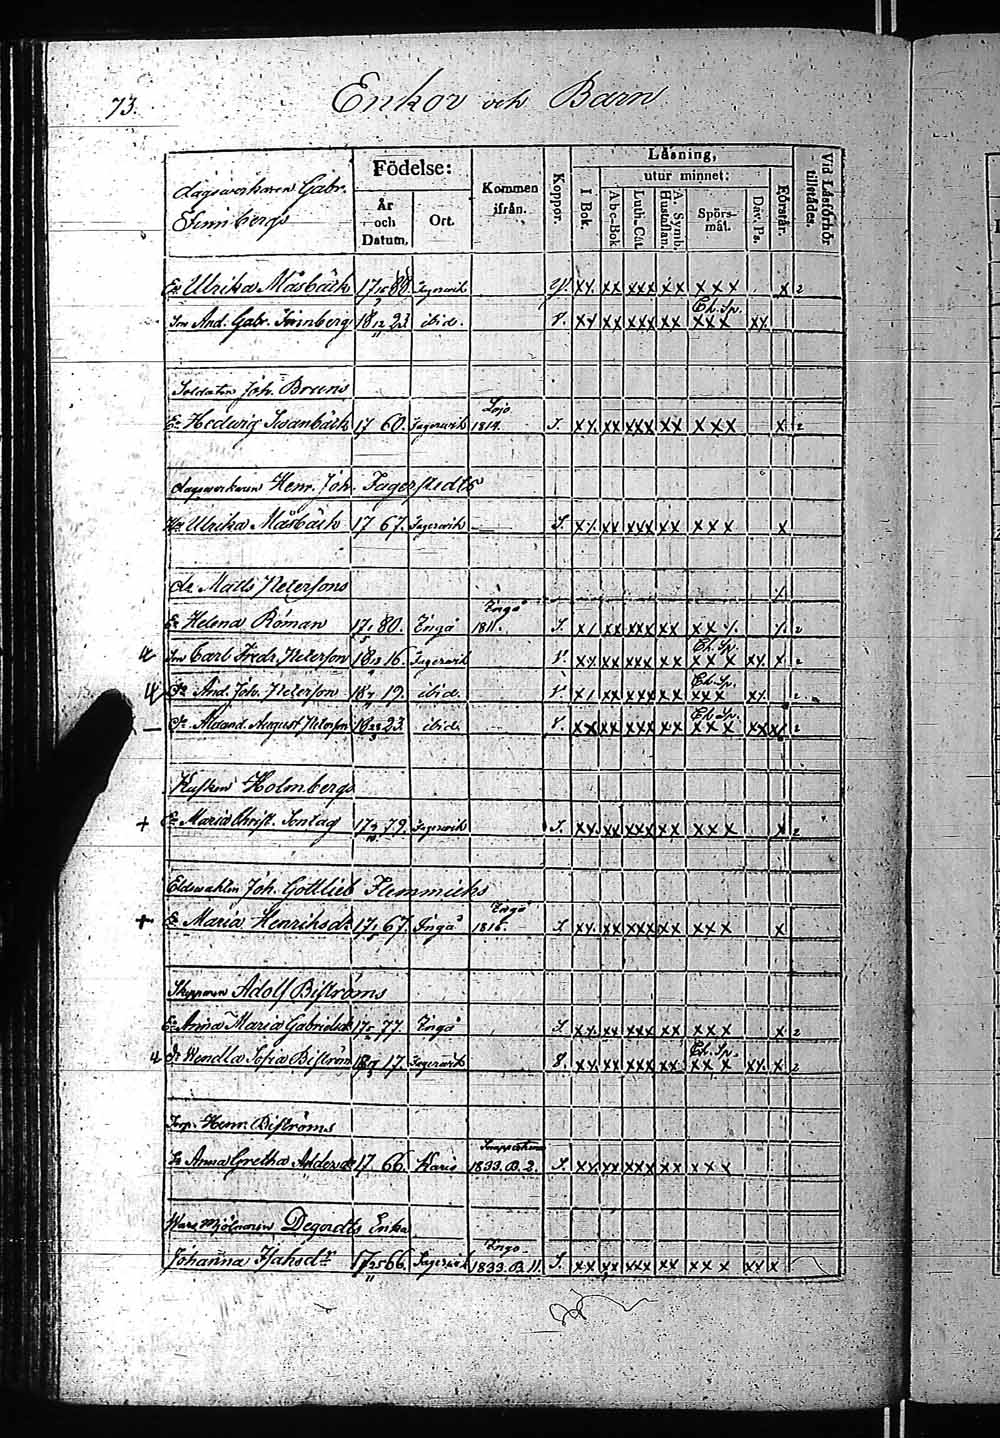 73.
Enkor och Barn
dagsverkaren Gabr. Finnbergs
Födelse:
År och Datum.
Ort.
Kommen ifrån.
Koppor.
Läsning,
I Bok.
utur minnet:
Abc-Bok
Luth. Cat.
A. Symb. Hustaflan.
Spörsmål.
Dav. Ps.
Förstår.
Vid Läsförhör tillstädes.
Ulrika Måsbäck 17 88 Fagervik xx xx xxx xx xxx x 2
Son And. Gabr. Finnberg 18 23 ibid. v. xx xx xxx xx Ch. Sp. xxx xx
Soldaten Joh. Bruns
Hedwig Svanbäck 17 60. Fagervik Lojo 1814. S. xx xx xxx xx xxx x 2
dagsverkaren Henr. Joh. Fagerstedts
Ulrika Måsbäck 17 67. Fagervik S. xx xx xxx xx xxx x
do Matts Petersons
Helena Roman 17 80. Ingå Ingå 1811. S. xx xxx xx 2
Son Carl Fredr. Peterson 18 16. Fagervik v. xx xx xxx xx Ch. Sp. xxx xx x 2
And. Joh. Peterson 18 19. ibid. v. xx xxx xx Ch. Sp. xxx xx 2
August Peterson 18 23. ibid. v. xx xx xxx xx Ch. Sp. xxx xx x 2
Kusken Holmbergs
+ Maria Christ. Sontag 17 79. Fagervik S. xx xx xxx xx xxx x 2
Joh. Gottlieb Flemmichs
+ Maria Henriksdr 17 67. Ingå Ingå 1816. S xx xx xxx xx xxx x
Skepparen Adolf Biströms
Anna Maria Gabrielsdr 17 77. Ingå S xx xx xxx xx xxx x 2
Wendla Sofia Biström 18 17. Fagervik v. xx xx xxx xx Ch. Sp. xxx xx x 2
Torp. Henr. Biströms
Anna Gretha Andersdr 17 66. Karis 1833. B. 2. S xx xx xxx xx xxx
Degerdts Enka
Johanna Isaksdr 17 66. Fagervik Ingå 1833. B. 11. S. xx xx xxx xx xxx xx x